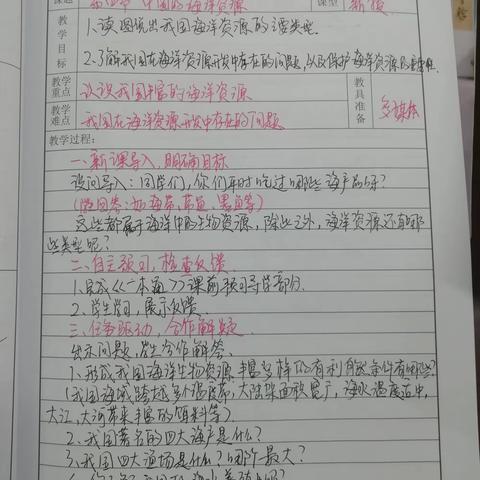 课题 第四节 中国的海洋资源 课型 新授
教学目标 1、读图说出我国海洋资源的主要类型.
2、了解我国在海洋资源开发中存在的问题,以及保护海洋资源的重要性.
教学重点 认识我国丰富的海洋资源
教学难点 我国在海洋资源开发中存在的问题
教具准备 多媒体
教学过程:
一、新课导入,明确目标
设问导入:同学们,你们平时吃过哪些海产品呀?
(做回答:如海带,带鱼,墨鱼等)
这些都属于海洋中的生物资源,除此之外,海洋资源还有哪
些类型呢?
二、自主预习,检查反馈.
1.完成《一本通》课前预习导学部分.
2、学生学习,展示反馈.
三、任务驱动,合作解疑.
出示问题,学生合作解答.
1、形成我国海洋生物资源丰富多样的有利自然条件有哪些?
(我国海域跨越多个温度带,大陆架面积宽广,海水温度适中,
大江,大河带来丰富的饵料等)
2、我国著名的四大海产是什么?
3、我国四大渔场是什么?哪个最大?